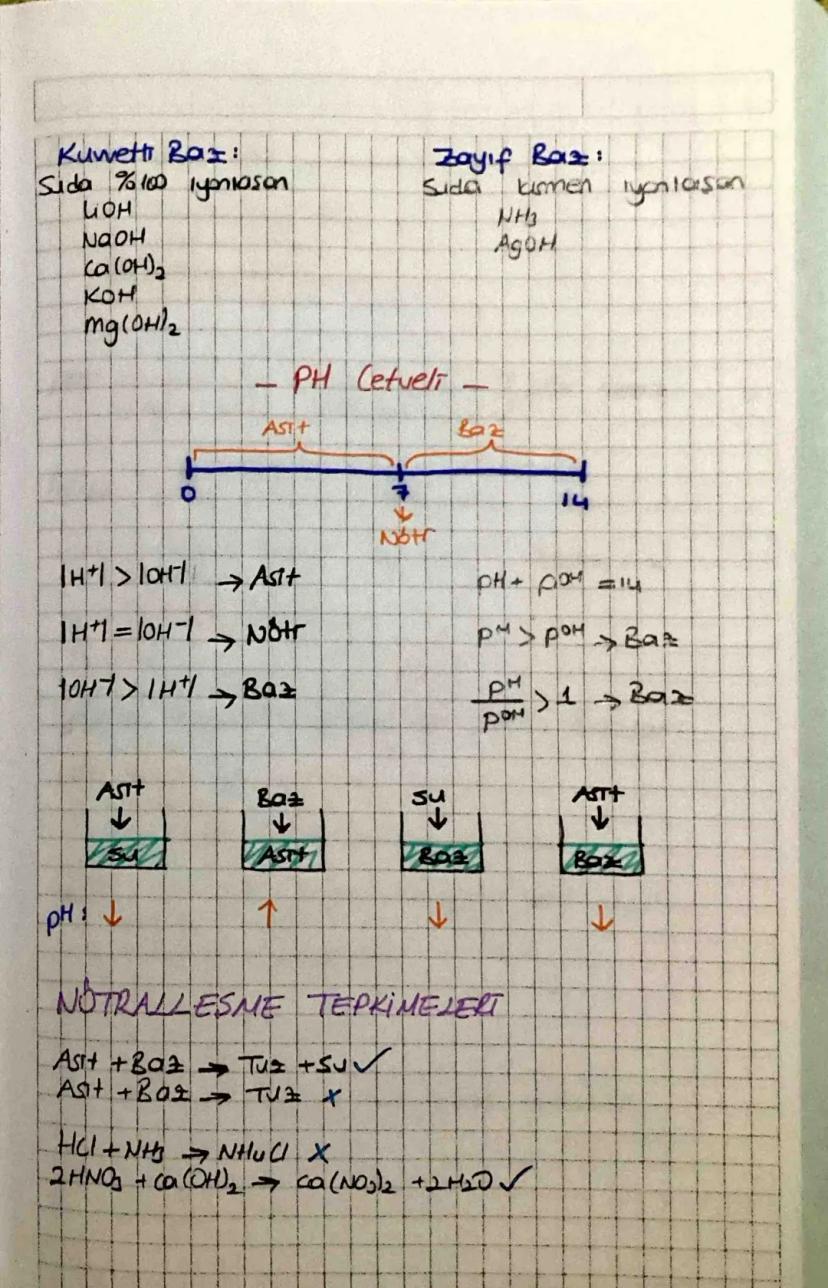 Kuvvetli Baz:
Suda %100 iyonlaşan
LiOH
NaOH
Ca(OH)₂
KOH
Mg(OH)₂
Zayıf Baz:
Suda kısmen iyonlaşan
NH₃
AgOH
- PH Cetveli -
Asit Baz
0 7 14
↓
Nötr
|H⁺| > |OH⁻| → Asit
|H⁺| = |OH⁻| → Nötr
|OH⁻| > |H⁺| → Baz
pH + pOH = 14
pH > pOH → Baz
pH/pOH > 1 → Baz
Asit Baz Su Asit
↓ ↓ ↓ ↓
Su Asit Baz Baz
pH: ↓ ↑ ↓ ↓
NÖTRALLEŞME TEPKİMELERİ
Asit + Baz → Tuz + Su ✓
Asit + Baz → Tuz x
HCl + NH₃ → NH₄Cl x
2HNO₃ + Ca(OH)₂ → Ca(NO₃)₂ + 2H₂O ✓